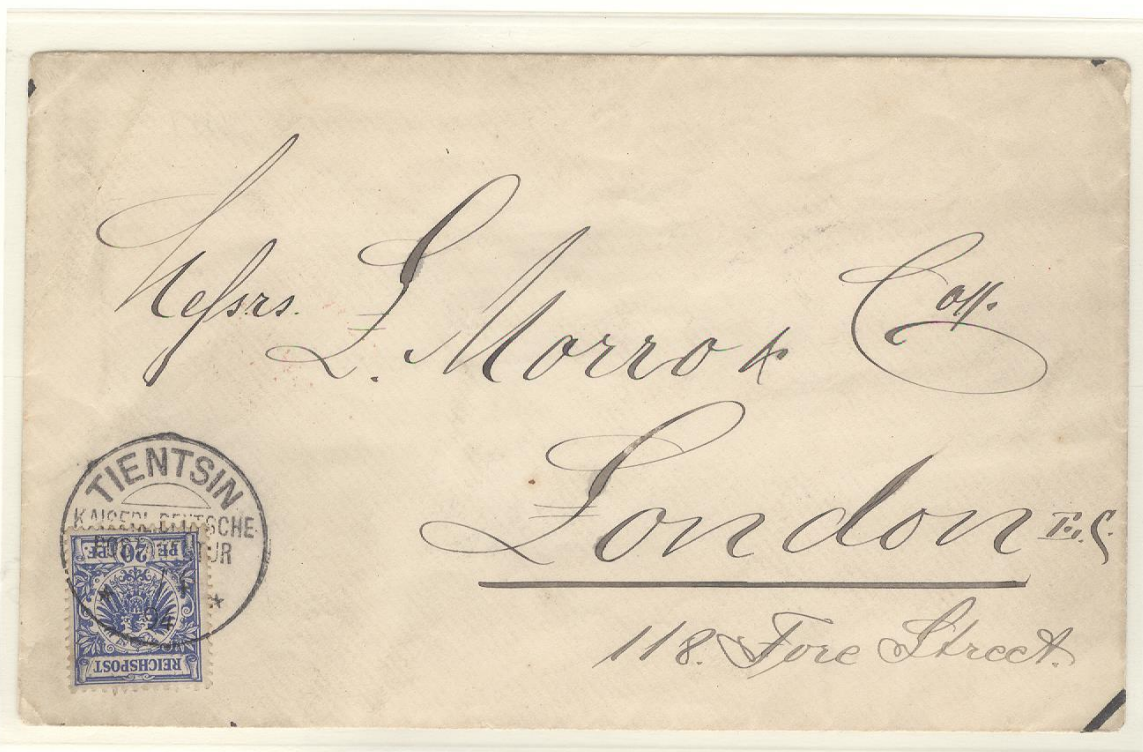 Messrs. L. Morro & Co.
London E.C.
118. Fore Street.
TIENTSIN
KAISERL. DEUTSCHE
POST
94
20 PF.
REICHSPOST